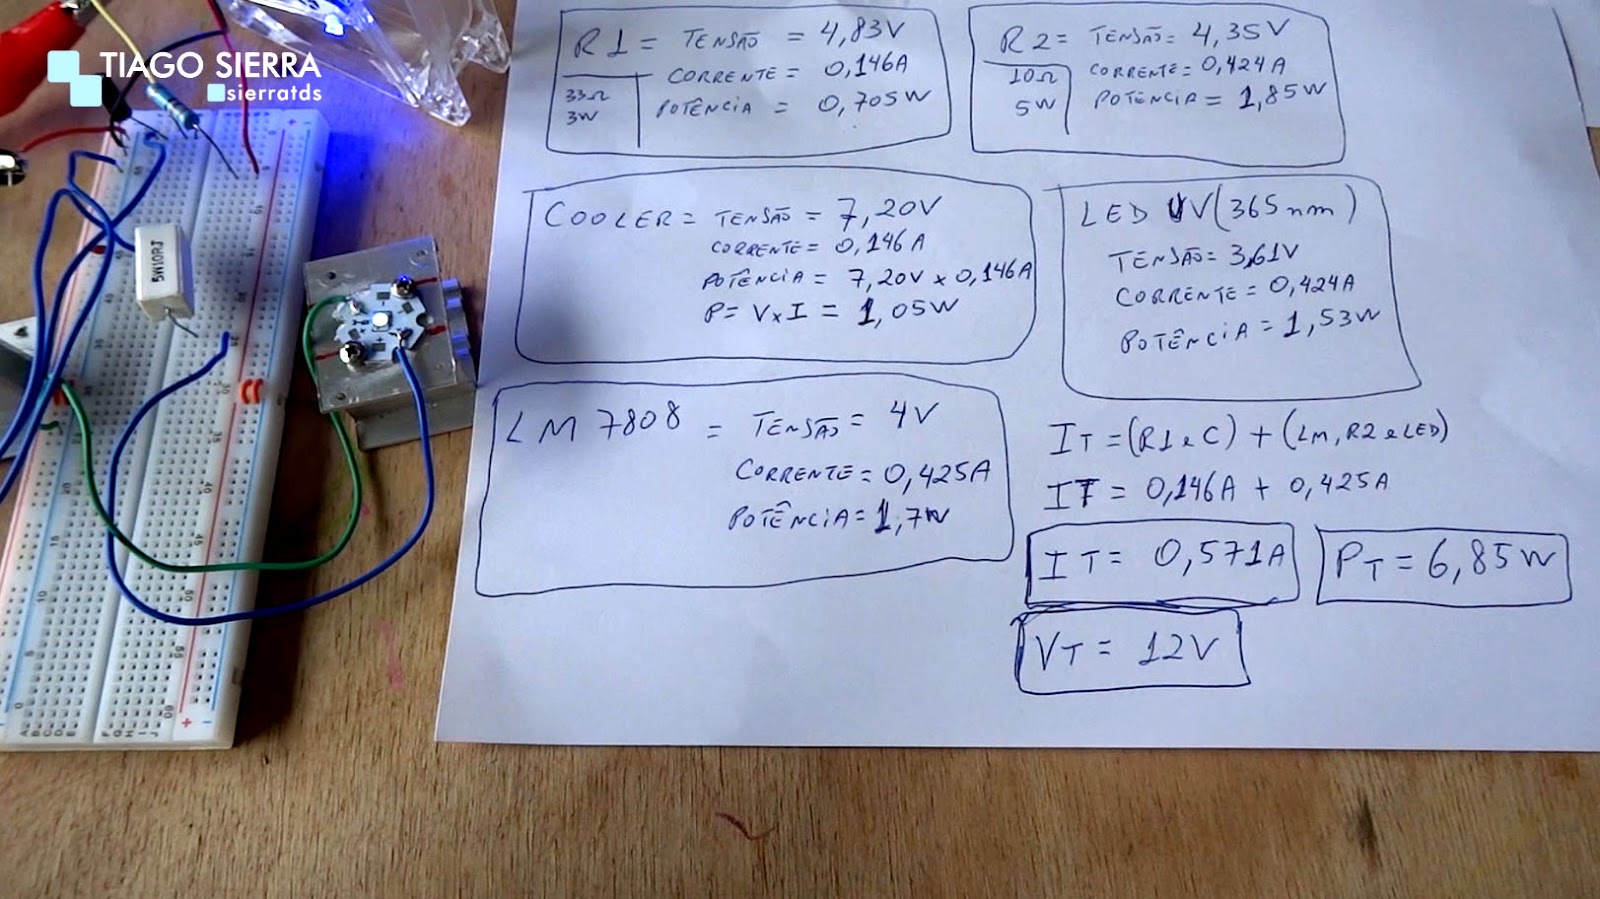 TIAGO SIERRA
sierratds
R1 = TENSÃO = 4,83V
CORRENTE = 0,146A
POTÊNCIA = 0,705W
33Ω
3W
R2 = TENSÃO = 4,35V
CORRENTE = 0,424A
POTÊNCIA = 1,85W
10Ω
5W
COOLER = TENSÃO = 7,20V
CORRENTE = 0,146A
POTÊNCIA = 7,20V x 0,146A
P = V x I = 1,05W
LED UV (365nm)
TENSÃO = 3,61V
CORRENTE = 0,424A
POTÊNCIA = 1,53W
LM 7808 = TENSÃO = 4V
CORRENTE = 0,425A
POTÊNCIA = 1,7W
IT = (R1 e C) + (LM, R2 e LED)
IT = 0,146A + 0,425A
IT = 0,571A
PT = 6,85W
VT = 12V
5W10RJ